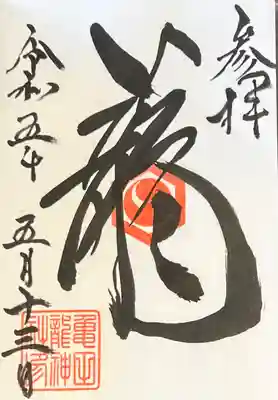 参拝
龍
令和五年 五月十三日
亀山
龍神